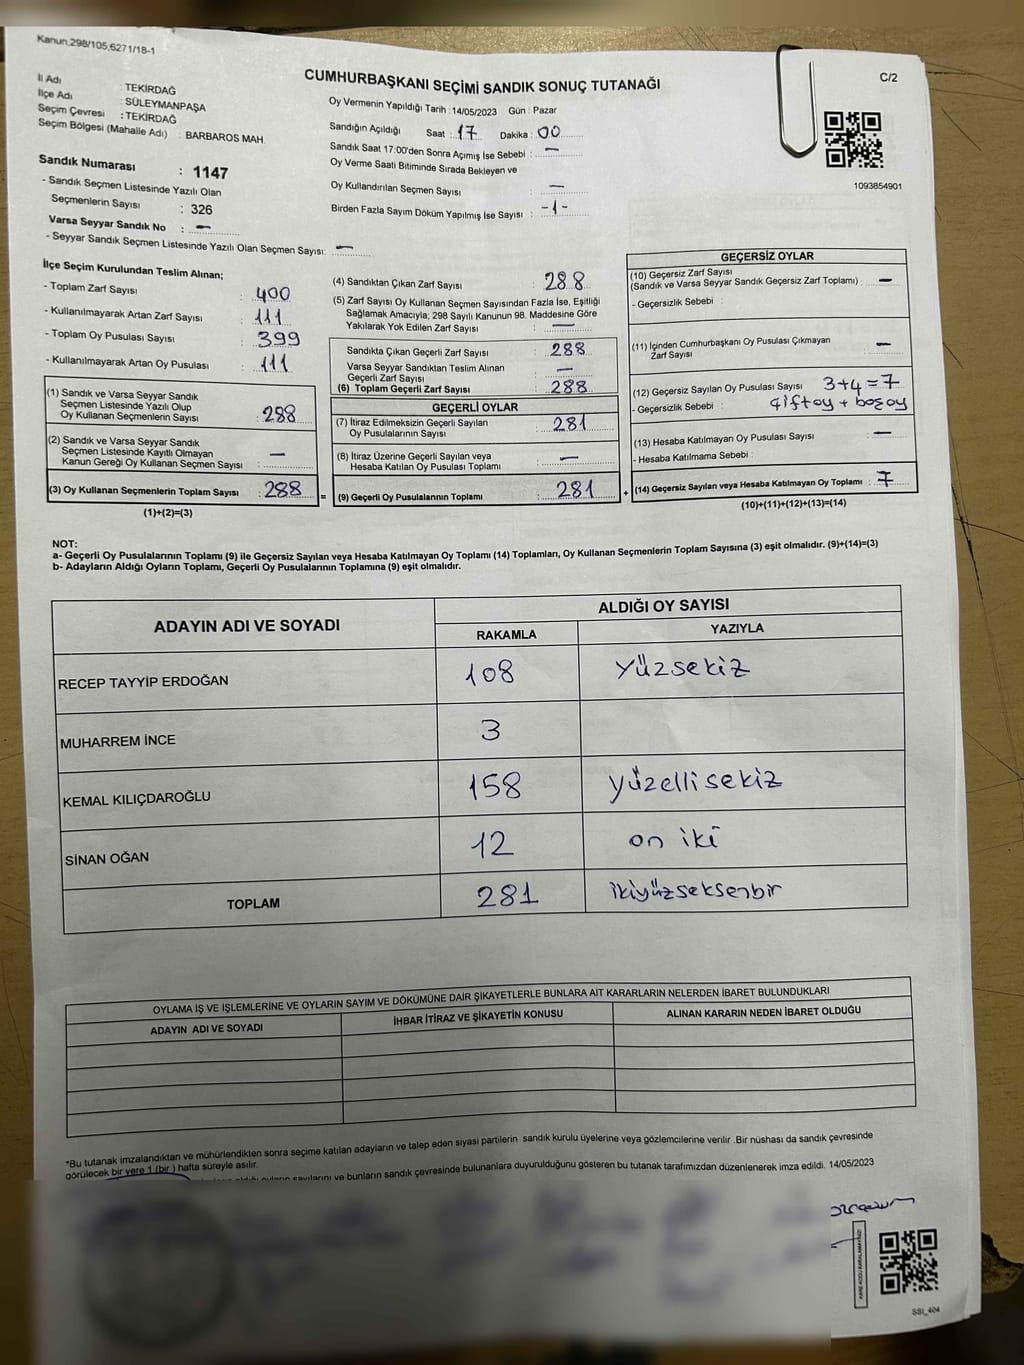 Kanun,298/105,6271/18-1
C/2
CUMHURBAŞKANI SEÇİMİ SANDIK SONUÇ TUTANAĞI
İl Adı : TEKİRDAĞ
İlçe Adı : SÜLEYMANPAŞA
Seçim Çevresi : TEKİRDAĞ
Seçim Bölgesi (Mahalle Adı) : BARBAROS MAH.
Sandık Numarası : 1147
- Sandık Seçmen Listesinde Yazılı Olan
Seçmenlerin Sayısı : 326
Varsa Seyyar Sandık No : —
- Seyyar Sandık Seçmen Listesinde Yazılı Olan Seçmen Sayısı: —
Oy Vermenin Yapıldığı Tarih : 14/05/2023 Gün : Pazar
Sandığın Açıldığı Saat : 17 Dakika : 00
Sandık Saat 17:00'den Sonra Açımış İse Sebebi : —
Oy Verme Saati Bitiminde Sırada Bekleyen ve
Oy Kullandırılan Seçmen Sayısı : —
Birden Fazla Sayım Döküm Yapılmış İse Sayısı : -1-
1093854901
İlçe Seçim Kurulundan Teslim Alınan;
- Toplam Zarf Sayısı : 400
- Kullanılmayarak Artan Zarf Sayısı : 111
- Toplam Oy Pusulası Sayısı : 399
- Kullanılmayarak Artan Oy Pusulası : 111
(1) Sandık ve Varsa Seyyar Sandık
Seçmen Listesinde Yazılı Olup
Oy Kullanan Seçmenlerin Sayısı : 288
(2) Sandık ve Varsa Seyyar Sandık
Seçmen Listesinde Kayıtlı Olmayan
Kanun Gereği Oy Kullanan Seçmen Sayısı : —
(3) Oy Kullanan Seçmenlerin Toplam Sayısı : 288 =
(1)+(2)=(3)
(4) Sandıktan Çıkan Zarf Sayısı : 288
(5) Zarf Sayısı Oy Kullanan Seçmen Sayısından Fazla İse, Eşitliği
Sağlamak Amacıyla; 298 Sayılı Kanunun 98. Maddesine Göre
Yakılarak Yok Edilen Zarf Sayısı : —
Sandıkta Çıkan Geçerli Zarf Sayısı : 288
Varsa Seyyar Sandıktan Teslim Alınan
Geçerli Zarf Sayısı : —
(6) Toplam Geçerli Zarf Sayısı : 288
GEÇERLİ OYLAR
(7) İtiraz Edilmeksizin Geçerli Sayılan
Oy Pusulalarının Sayısı : 281
(8) İtiraz Üzerine Geçerli Sayılan veya
Hesaba Katılan Oy Pusulası Toplamı : —
(9) Geçerli Oy Pusulalarının Toplamı : 281 +
GEÇERSİZ OYLAR
(10) Geçersiz Zarf Sayısı
(Sandık ve Varsa Seyyar Sandık Geçersiz Zarf Toplamı) : —
- Geçersizlik Sebebi :
(11) İçinden Cumhurbaşkanı Oy Pusulası Çıkmayan
Zarf Sayısı : —
(12) Geçersiz Sayılan Oy Pusulası Sayısı : 3+4=7
- Geçersizlik Sebebi : çift oy + boş oy
(13) Hesaba Katılmayan Oy Pusulası Sayısı : —
- Hesaba Katılmama Sebebi :
(14) Geçersiz Sayılan veya Hesaba Katılmayan Oy Toplamı : 7
(10)+(11)+(12)+(13)=(14)
NOT:
a- Geçerli Oy Pusulalarının Toplamı (9) ile Geçersiz Sayılan veya Hesaba Katılmayan Oy Toplamı (14) Toplamları, Oy Kullanan Seçmenlerin Toplam Sayısına (3) eşit olmalıdır. (9)+(14)=(3)
b- Adayların Aldığı Oyların Toplamı, Geçerli Oy Pusulalarının Toplamına (9) eşit olmalıdır.
ADAYIN ADI VE SOYADI
ALDIĞI OY SAYISI
RAKAMLA YAZIYLA
RECEP TAYYİP ERDOĞAN 108 yüzsekiz
MUHARREM İNCE 3
KEMAL KILIÇDAROĞLU 158 yüzellisekiz
SİNAN OĞAN 12 on iki
TOPLAM 281 ikiyüzseksenbir
OYLAMA İŞ VE İŞLEMLERİNE VE OYLARIN SAYIM VE DÖKÜMÜNE DAİR ŞİKAYETLERLE BUNLARA AİT KARARLARIN NELERDEN İBARET BULUNDUKLARI
ADAYIN ADI VE SOYADI İHBAR İTİRAZ VE ŞİKAYETİN KONUSU ALINAN KARARIN NEDEN İBARET OLDUĞU
*Bu tutanak imzalandıktan ve mühürlendikten sonra seçime katılan adayların ve talep eden siyasi partilerin sandık kurulu üyelerine veya gözlemcilerine verilir .Bir nüshası da sandık çevresinde
görülecek bir yere 1 (bir ) hafta süreyle asılır.
aldığı oyların sayılarını ve bunların sandık çevresinde bulunanlara duyurulduğunu gösteren bu tutanak tarafımızdan düzenlenerek imza edildi. 14/05/2023
SSI_404